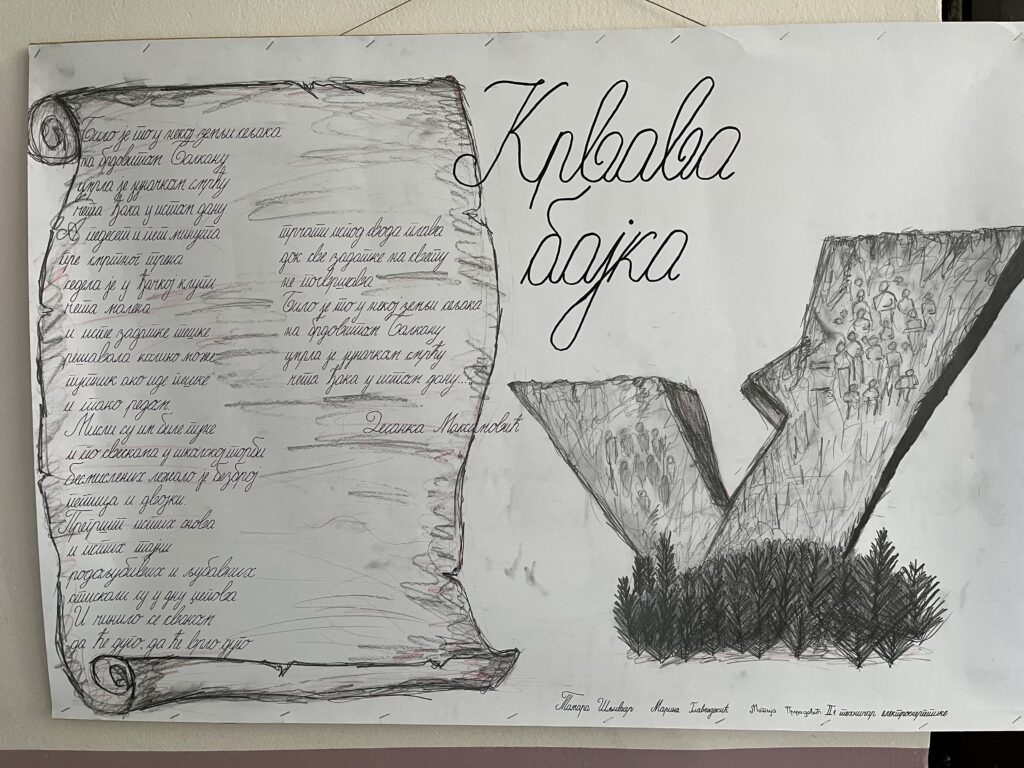 Крвава
бајка
Било је то у некој земљи сељака
на брдовитом Балкану
умрла је јуначком смрћу
чета ђака у истом дану
А педесет и пет минута
пре смртног трена
седела је у ђачкој клупи
чета малена
и исте задатке тешке
решавала колико може
путник ако иде пешке
и тако редом.
Мисли су им биле пуне
и по свескама у школској торби
бесмислених лежало је безброј
петица и двојки.
Прегршт истих снова
и истих тајни
родољубивих и љубавних
стискали су у дну џепова
И чинило се сваком
да ће дуго, да ће врло дуго
трчати испод свода плава
док све задатке на свету
не посвршава
Било је то у некој земљи сељака
на брдовитом Балкану
умрла је јуначком смрћу
чета ђака у истом дану...
Десанка Максимовић
Тамара Шљивар Марина II1 техничар електроенергетике